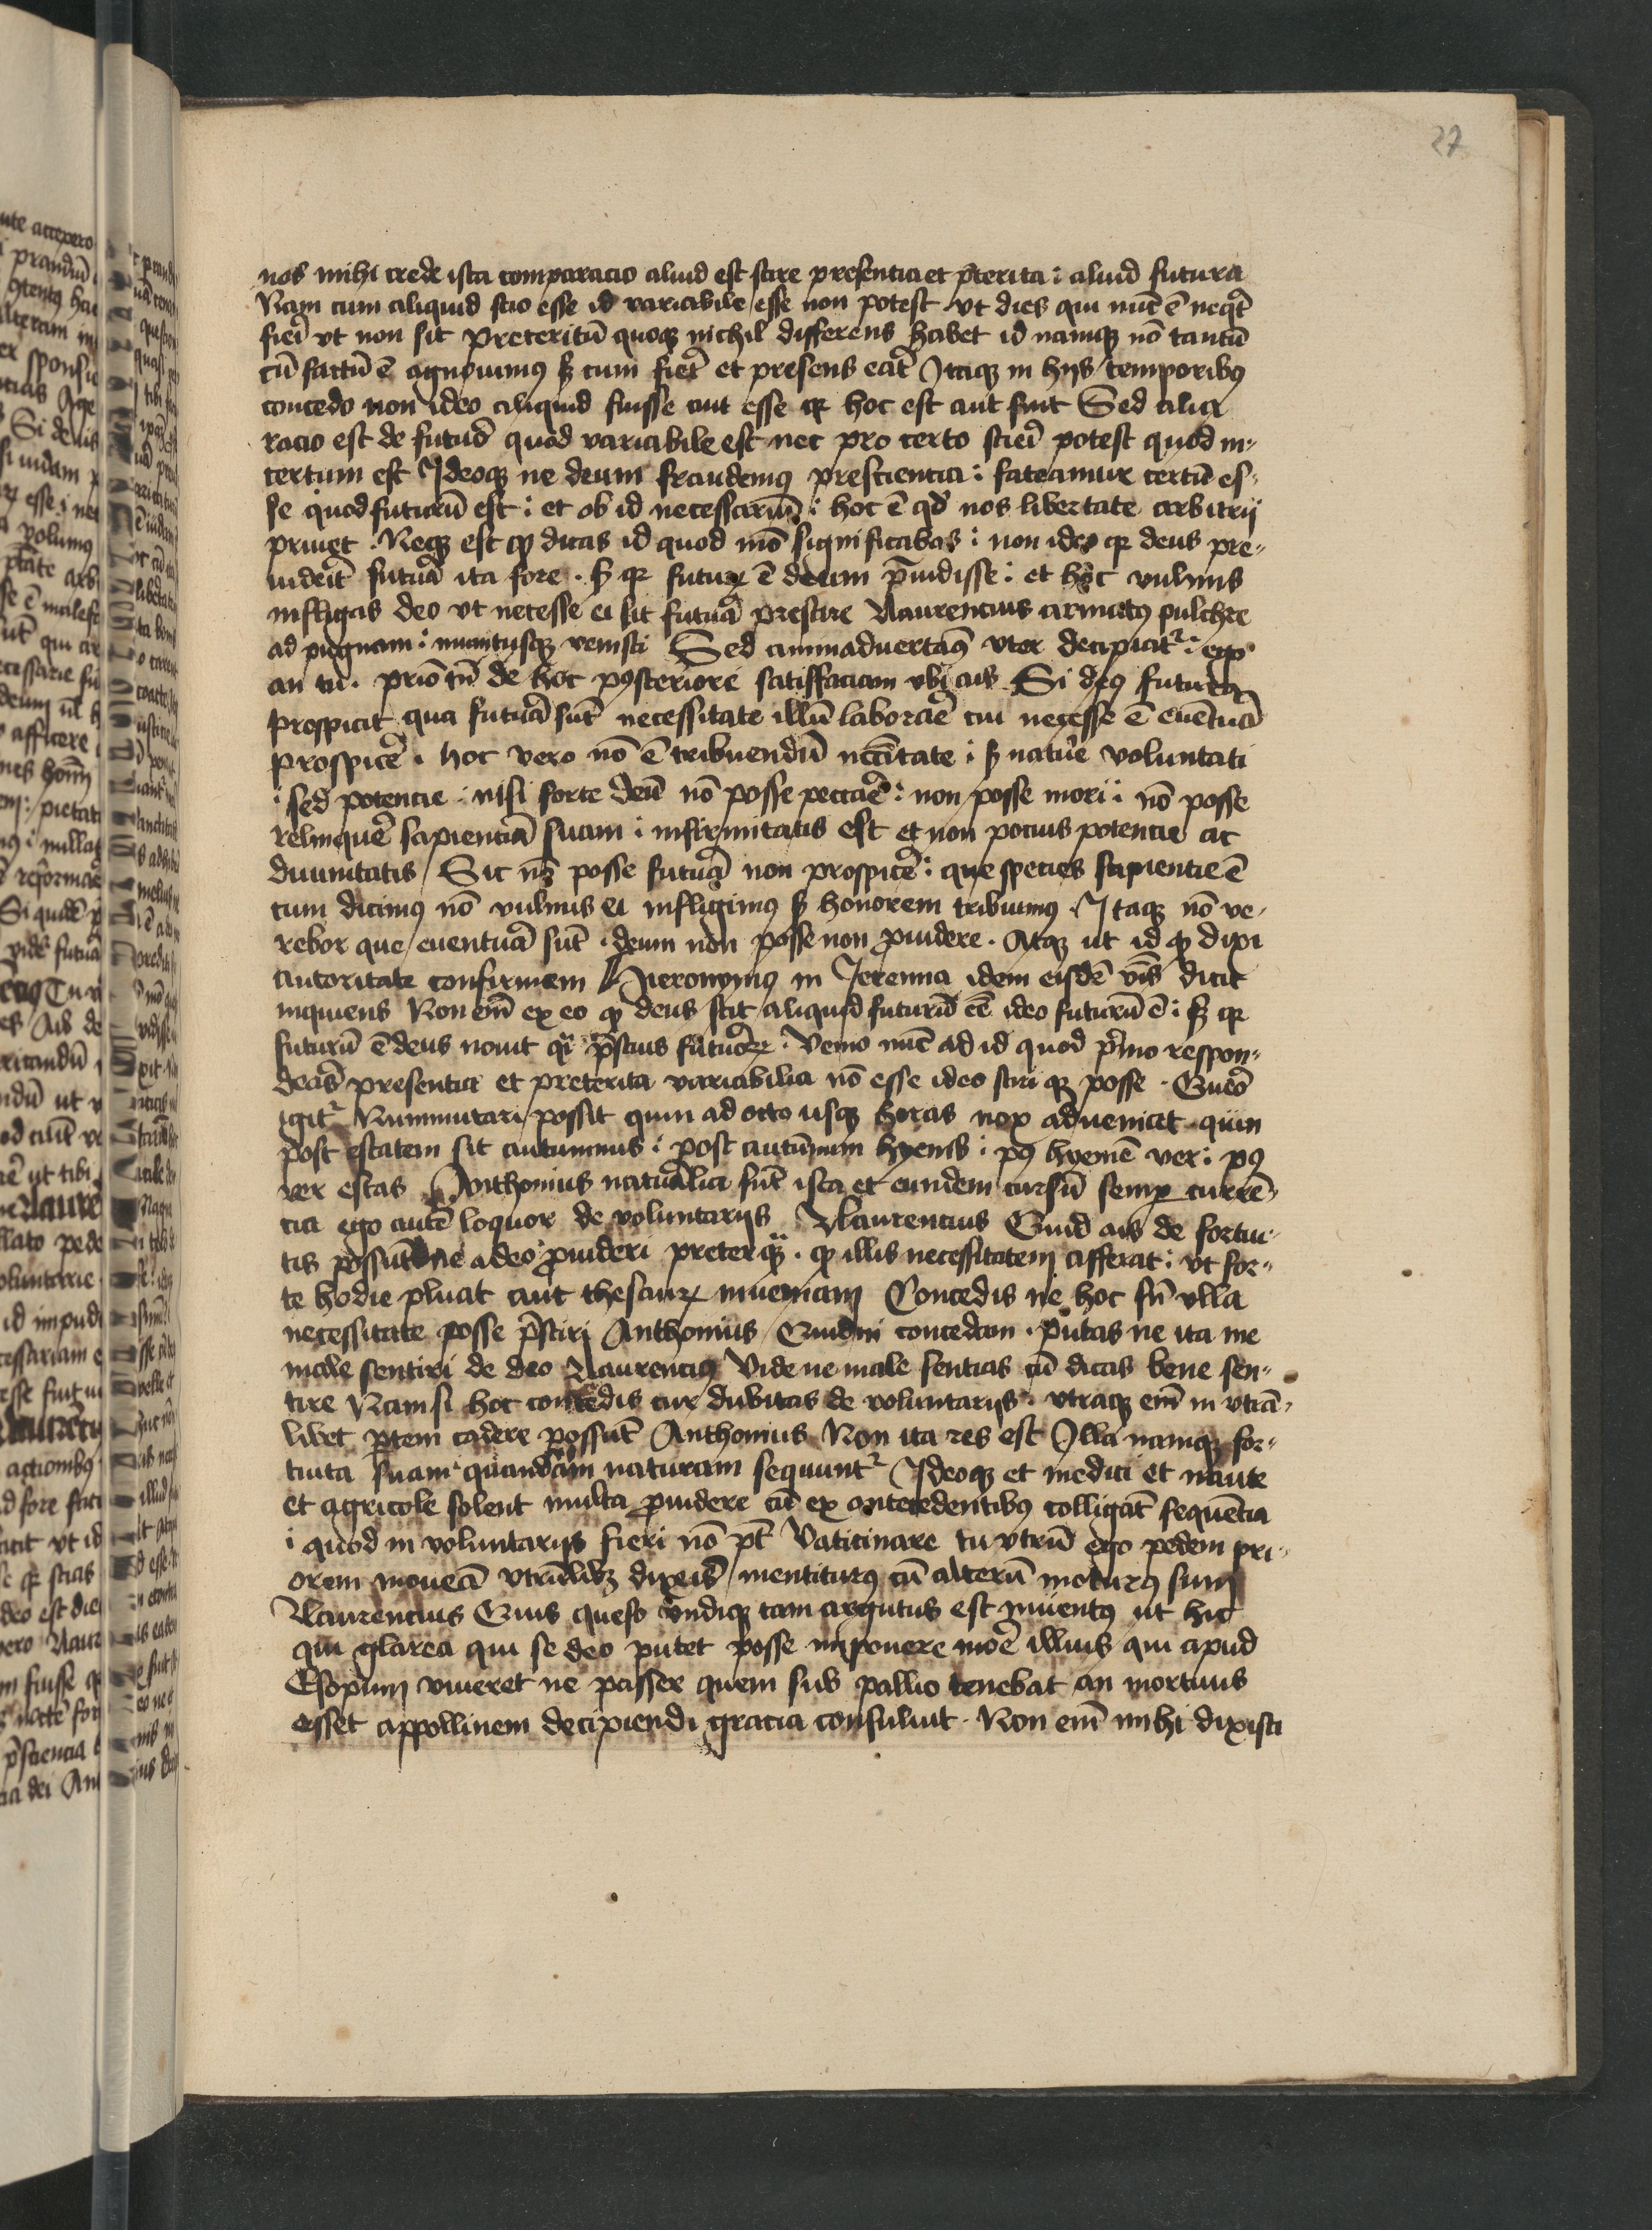 27
nos mihi crede ista comparacio aliud est scire presentia et p̄terita : aliud futura
Nam cum aliquid scio esse id variabile esse non potest vt dies qui nūc ē neqt̄
fieri vt non sit Preteritū quoqꝫ nichil differens habet id namqꝫ nō tantū
cū factū ē agnouimꝰ sꝫ cum fier̄t et presens erat̄ Itaqꝫ in hijs temporibꝰ
concedo non ideo aliquid fuisse aut esse qꝛ hoc est aut fuit Sed alia
racio est de futuro quod variabile est nec pro certo sciri potest quod in-
certum est Ideoqꝫ ne deum fraudemꝰ prescientia : fateamur certū es-
se quod futurū est : et ob id necessariū : hoc ē qd̄ nos libertate arbitrij
priuet . Neqꝫ est qꝙ dicas id quod mō significabas : non ideo qꝛ deus pre-
uiderit futura ita fore . sꝫ qꝛ futuꝝ ē deum p̄uidisse : et hoc vulnus
infligas deo vt necesse ei sit futura prescire Naurencius armatꝰ pulchre
ad pugnam : inuntusqꝫ venisti Sed animaduertamꝰ vter decipiatr̄ : ego
an tu . prio tn̄ de hoc posteriore satisfaciam vbi ais Si deꝰ futura
prospicit qua futura sūt necessitate illū laborare cui necesse ē euentura
prospicere . hoc vero nō ē tribuendū nccītate : sꝫ nature voluntati
: sed potencie : nisi forte deū nō posse peccare : non posse mori : nō posse
relinquere sapienciam suam : infirmitatis est et non pocius potencie ac
diuinitatis Sic nō posse futura non prospicere : que species sapientie ē
cum dicimꝰ nō vulnus ei infligimꝰ sꝫ honorem tribuimꝰ . Itaqꝫ nō ve-
rebor que euentura sūt . deum non posse non p̄uidere . Atqꝫ ut id qꝙ dixi
autoritate confirmem Hieronymꝰ in Jeremia idem eisdē v̄bis dicit
inquiens Non em̄ ex eo qꝙ deus scit aliquid futurū eē ideo futurū ē : sꝫ qꝛ
futurū ē deus nouit qi p̄scius futuroꝝ . Venio nūc ad id quod p̄mo respon-
deras presentia et preterita variabilia nō esse ideo sciri qꝫ posse . Quero
igitr̄ Num mutari possit quin ad octo usqꝫ horas nox adueniat . quin
post estatem sit autumnus : post autūnum hyems : pꝰ hyemē ver : pꝰ
ver estas Anthonius naturalia sūt ista et eundem cursū semꝑ curren-
tia ego autē loquor de voluntarijs Naurencius Quid ais de fortui-
tis possūt ne a deo p̄uideri preterqꝫ . qꝙ illis necessitatem afferat : vt for-
te hodie pluat aut thesauꝝ inueniam Concedis ne hoc sn̄ vlla
necessitate posse p̄sciri Anthonius Quidni concedam . putas ne ita me
male sentiri de deo Naurenciꝰ Vide ne male sentias cū dicas bene sen-
tire Nam si hoc concedis cur dubitas de voluntarijs . vtraqꝫ em̄ in vtrā-
libet ꝑtem cadere possūt Anthonius Non ita res est Illa namqꝫ for-
tuita suam quandam naturam sequuntr̄ Ideoqꝫ et medici et naute
et agricole solent multa p̄uidere cū ex antecedentibꝰ colligāt sequētia
: quod in voluntarijs fieri nō pt̄ Vaticinare tu vtrū ego pedem pri-
orem moueā vtrūlibꝫ dixeris mentiturꝰ cū alterū moturꝰ sum
Naurencius Quis queso vndiqꝫ tam argutus est inuentꝰ ut hic
qui glarea qui se deo putet posse imponere more illius qui apud
Esopum viueret ne passer quem sub pallio tenebat an mortuus
esset appollinem decipiendi gracia consuluit . Non em̄ mihi dixisti